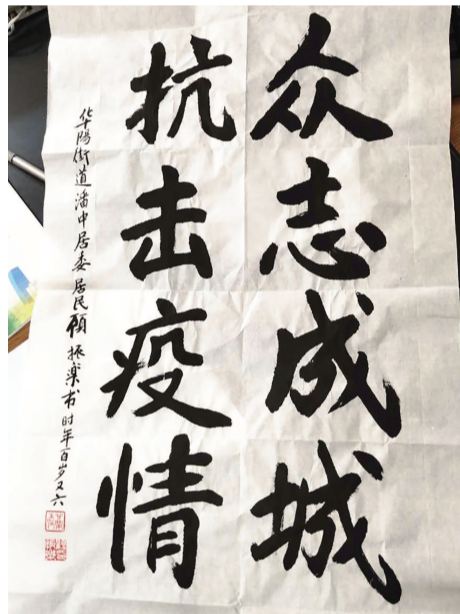 众志成城
抗击疫情
华阳街道潘中居委居民顾振乐书时年百岁又六